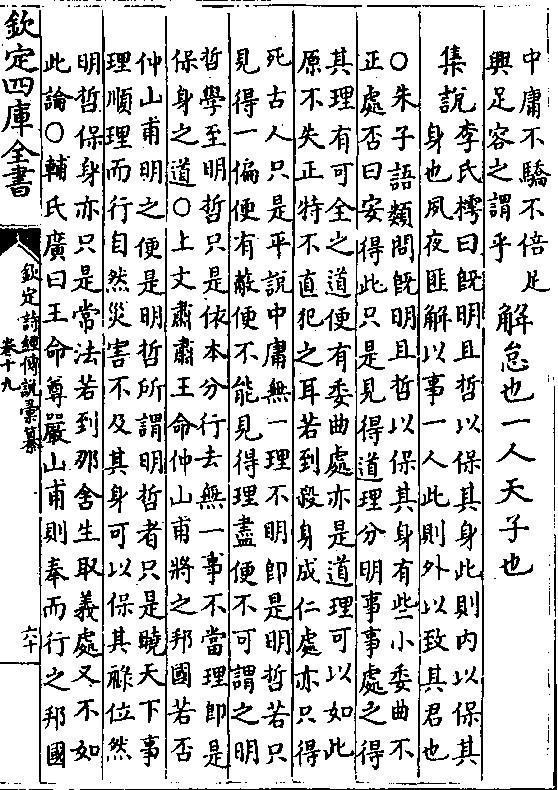 中庸不驕不倍足
興足容之謂乎
解怠也一人天子也
集說李氏樗曰既明且哲以保其身此則内以保其
身也夙夜匪解以事一人此則外以致其君也
○朱子語類問既明且哲以保其身有些小委曲不
正處否曰安得此只是見得道理分明事事處之得
其理有可全之道便有委曲處亦是道理可以如此
原不失正特不直犯之耳若到殺身成仁處亦只得
死古人只是平說中庸無一理不明即是明哲若只
見得一偏便有蔽便不能見得理盡便不可謂之明
哲學至明哲只是依本分行去無一事不當理即是
保身之道○上文肅肅王命仲山甫將之邦國若否
仲山甫明之便是明哲所謂明哲者只是曉天下事
理順理而行自然災害不及其身可以保其祿位然
明哲保身亦只是常法若到那舍生取義處又不如
此論○輔氏廣曰王命尊嚴山甫則奉而行之邦國
欽定四庫全書
欽定詩經傳說彙纂
卷十九
六十